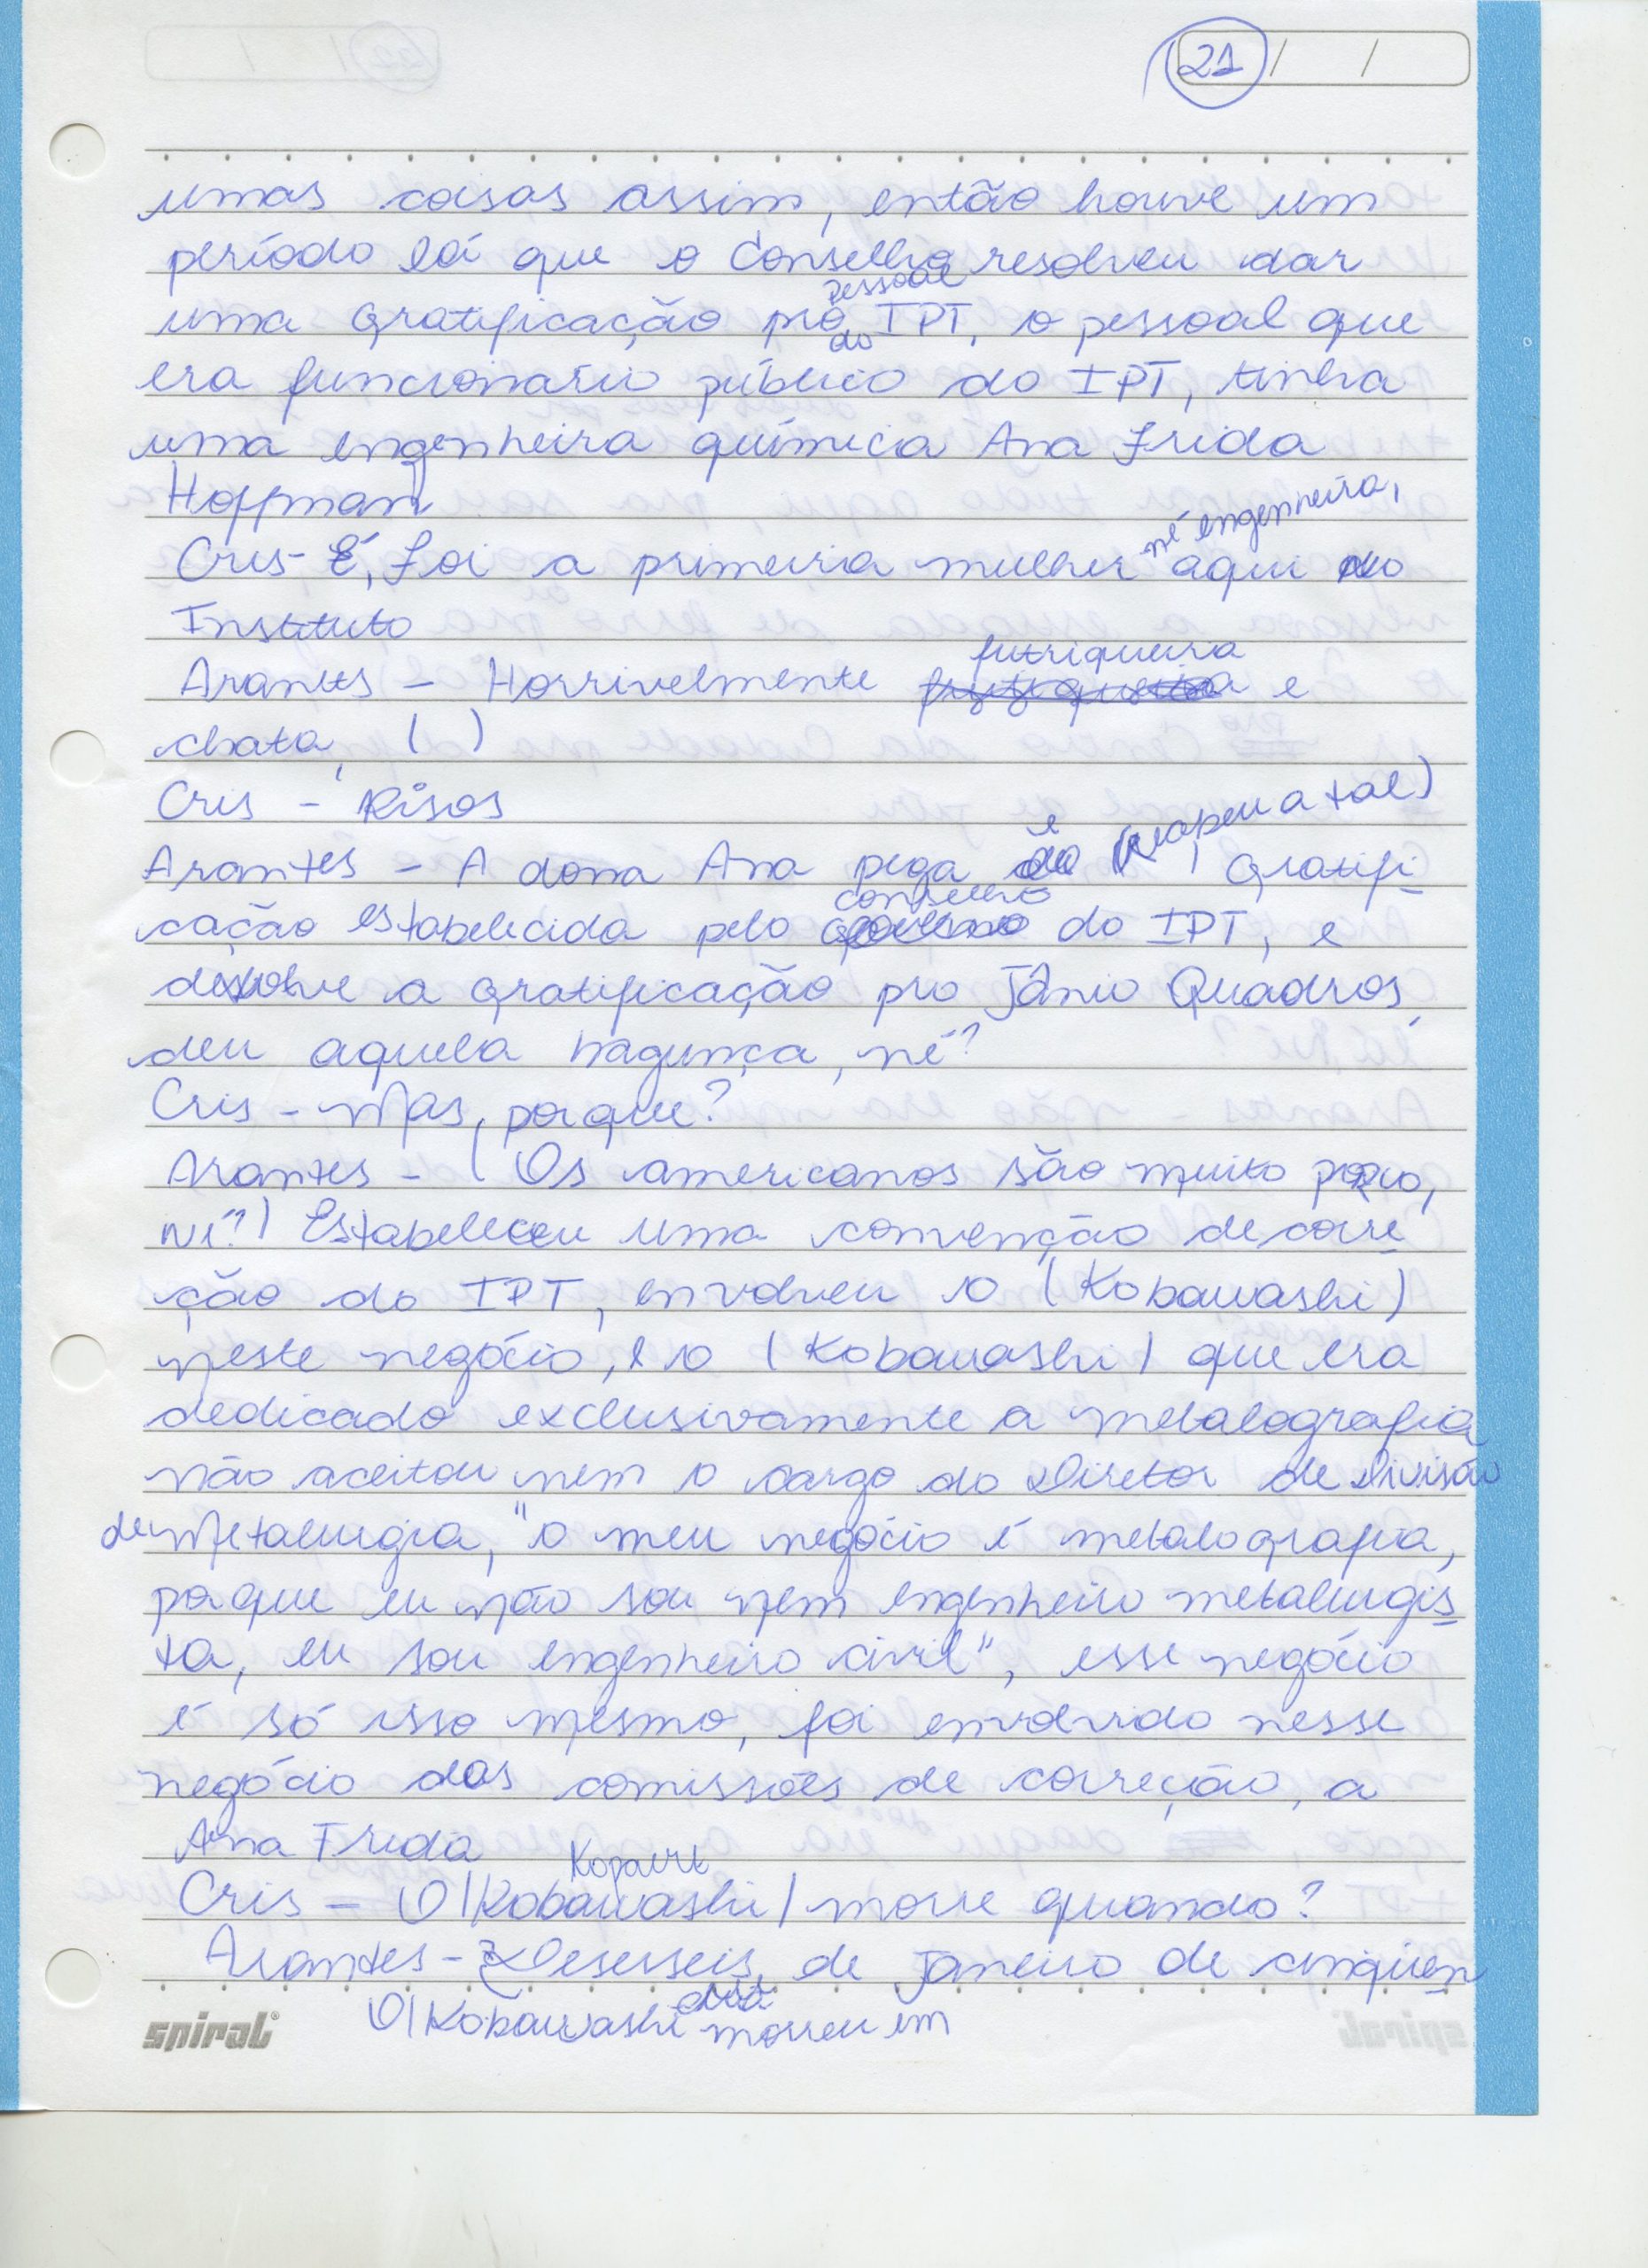 21 / /
umas coisas assim, então houve um
período lá que o Conselho resolveu dar
pessoal
uma gratificação pro IPT, o pessoal que
do
era funcionário público do IPT, tinha
uma engenheira química Ana Frida
Hoffman
né engenheira,
Cris - É, foi a primeira mulher aqui do
Instituto
futriqueira
Arantes - Horrivelmente e
chata, ( )
Cris - Risos
e (recapeu a tal)
Arantes - A dona Ana pega gratifi
conselho
cação estabelecida pelo governo do IPT, e
devolve a gratificação pro Jânio Quadros,
deu aquela bagunça, né?
Cris - Mas, porque?
Arantes - (Os americanos são muito porco,
né?) Estabeleceu uma convenção de corre
ção do IPT, envolveu o (Kobawashi)
neste negócio, e o (Kobawashi) que era
dedicado exclusivamente a metalografia
não aceitou nem o cargo do Diretor de Divisão
de Metalurgia, "o meu negócio é metalografia,
porque eu não sou nem engenheiro metalurgis
ta, eu sou engenheiro civil", esse negócio
é só isso mesmo, foi envolvido nesse
negócio das comissões de correção, a
Ana Frida
Cris - O (Kobawashi) morre quando?
Arantes - Deserseis, de janeiro de cinqüen
O (Kobawashi morreu em
spiral®